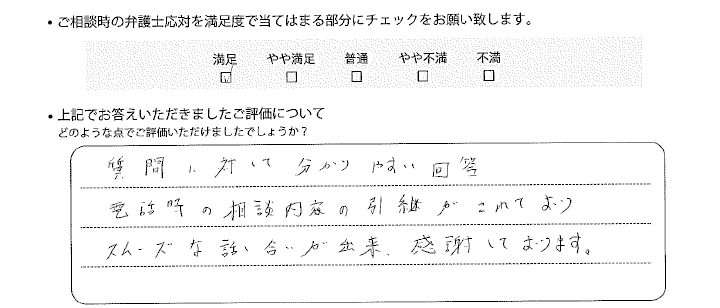 ・ご相談時の弁護士応対を満足度で当てはまる部分にチェックをお願い致します。
満足 やや満足 普通 やや不満 不満
・上記でお答えいただきましたご評価について
どのような点でご評価いただけましたでしょうか？
質問に対して分かりやすい回答
電話時の相談内容の引継がされており
スムーズな話し合いが出来、感謝しております。